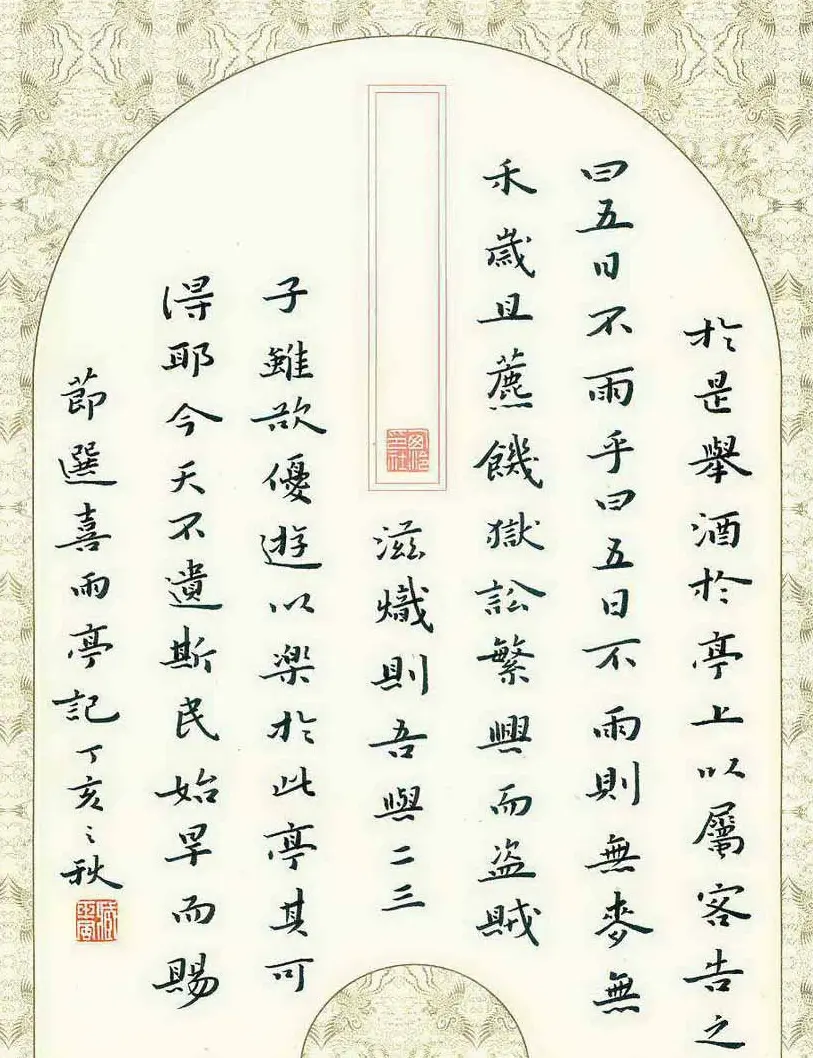 於是舉酒於亭上以屬客告之
曰五日不雨乎曰五日不雨則無麥無
禾歲且薦饑獄訟繁興而盜賊
西泠印社
滋熾則吾與二三
子雖欲優遊以楽於此亭其可
得耶今天不遺斯民始旱而賜
節選喜雨亭記丁亥之秋